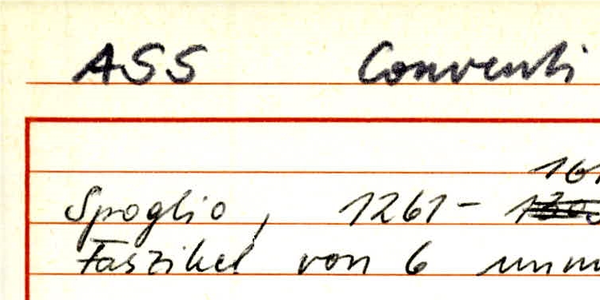 ASS Conventi
Spoglio, 1261-
Faszikel von 6